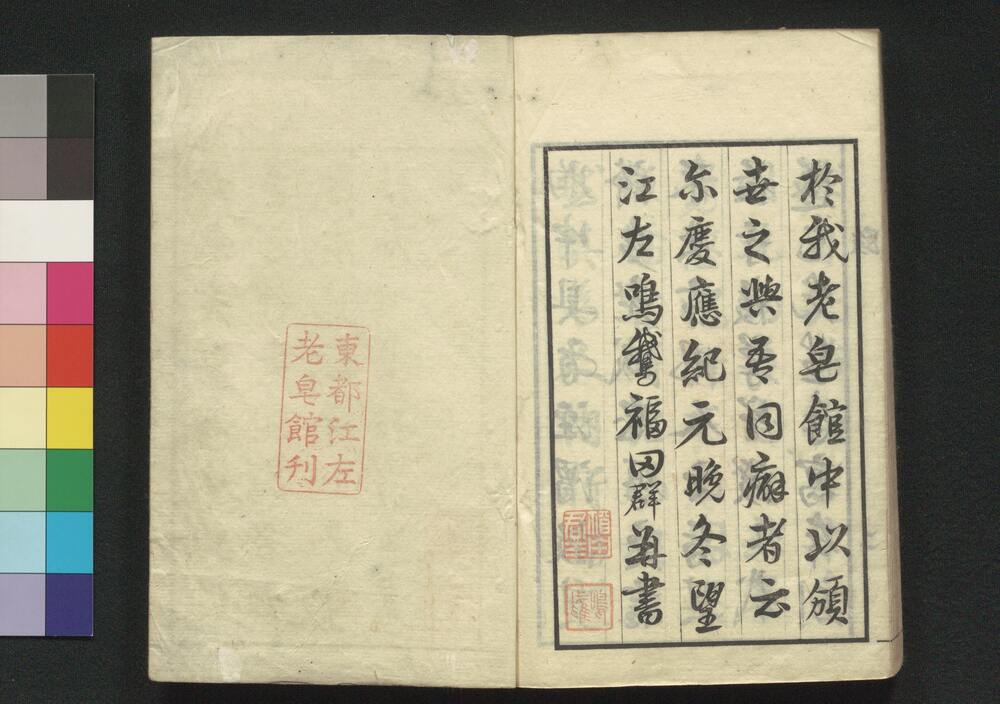 於我老皂館中以頒
世之與吾同癖者云
尓慶應紀元晚冬望
江左鳴鵞福田群并書
東都江左
老皂館刊